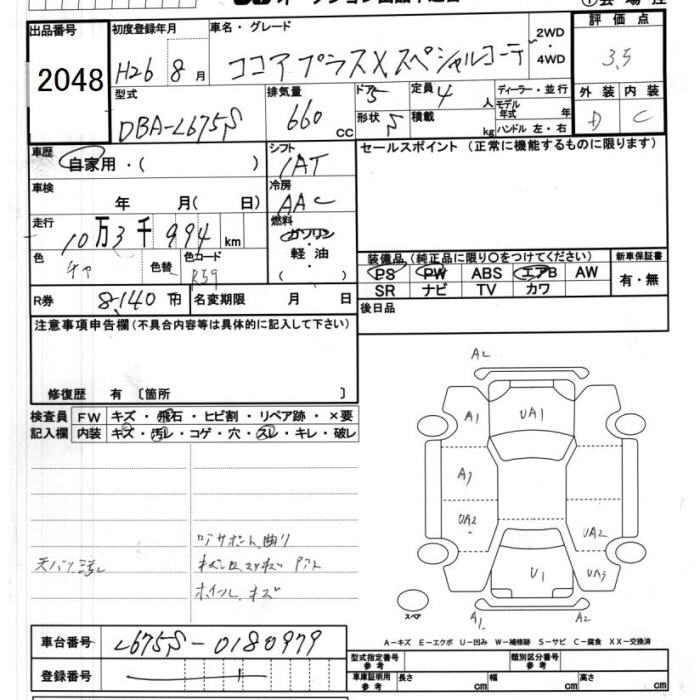 出品番号
2048
初度登録年月
H26 8月
車名・グレード
ココアプラスXスペシャルコーデ
2WD
・
4WD
評価点
3.5
外装 内装
D C
型式
DBA-L675S
排気量
660 cc
ドア 5
形状 5
定員 4 人
積載 kg
ディーラー・並行
モデル年式 年
ハンドル 左・右
車歴
自家用・( )
シフト
IAT
セールスポイント (正常に機能するものに限ります)
車検
年 月( 日)
冷房
AAC
走行
10万3千994 km
燃料
ガソリン
軽油
( )
色
色替
色コード
R59
装備品 (純正品に限り○をつけてください)
新車保証書
PS PW ABS エアB AW
有・無
SR ナビ TV カワ
R券
8,140円
名変期限 月 日
後日品
注意事項申告欄(不具合内容等は具体的に記入して下さい)
修復歴 有 〔箇所 〕
検査員
記入欄
FW キズ・飛石・ヒビ割・リペア跡・×要
内装 キズ・汚レ・コゲ・穴・スレ・キレ・破レ
天バリ汚レ
ホイルキズ
A2
A1
UA1
A1
UA2
UA2
U1
UA3
スペア
A1
A2
A-キズ E-エクボ U-凹み W-補修跡 S-サビ C-腐食 XX-交換済
車台番号
L675S-0180979
登録番号
型式指定番号
参考
類別区分番号
参考
車庫証明用
参考
長さ cm
幅 cm
高さ cm